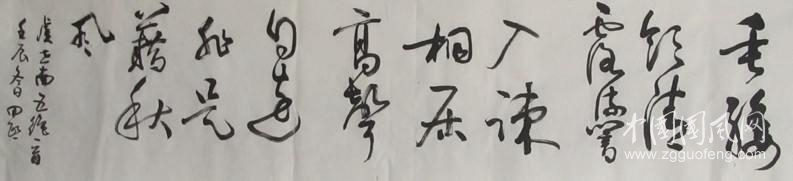 垂緌
飲清
露流響
入疎
桐居
高聲
自遠
非是
藉秋
風
虞世南五絕一首
壬辰
中国国风网
www.zgguofeng.com